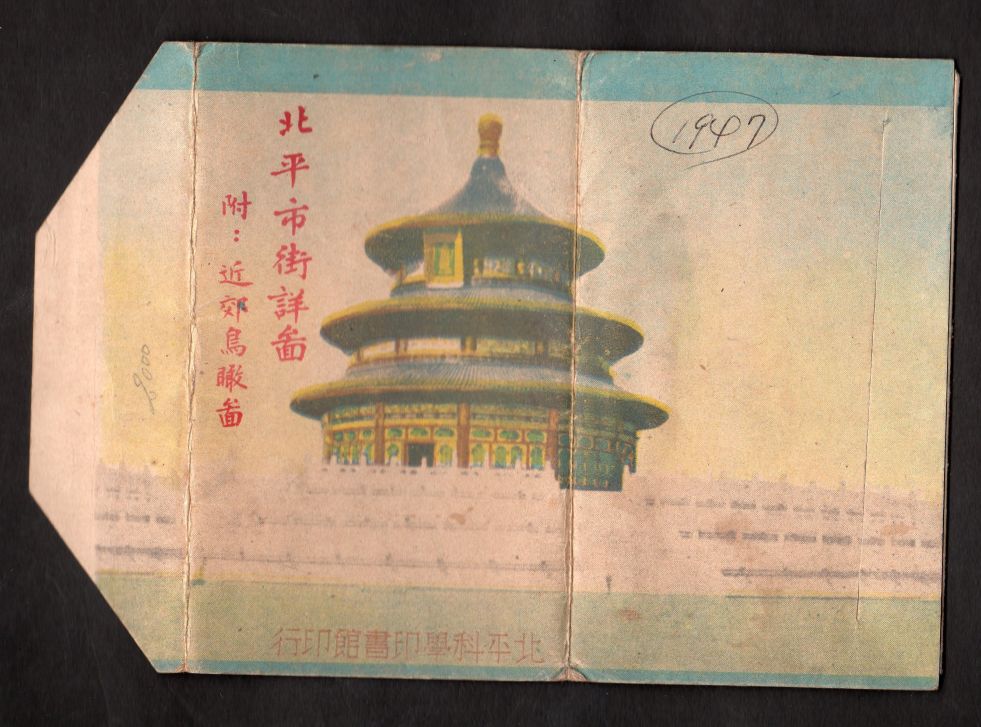 1947
北平市街詳啚
附：近郊鳥瞰啚
北平科學印書館印行